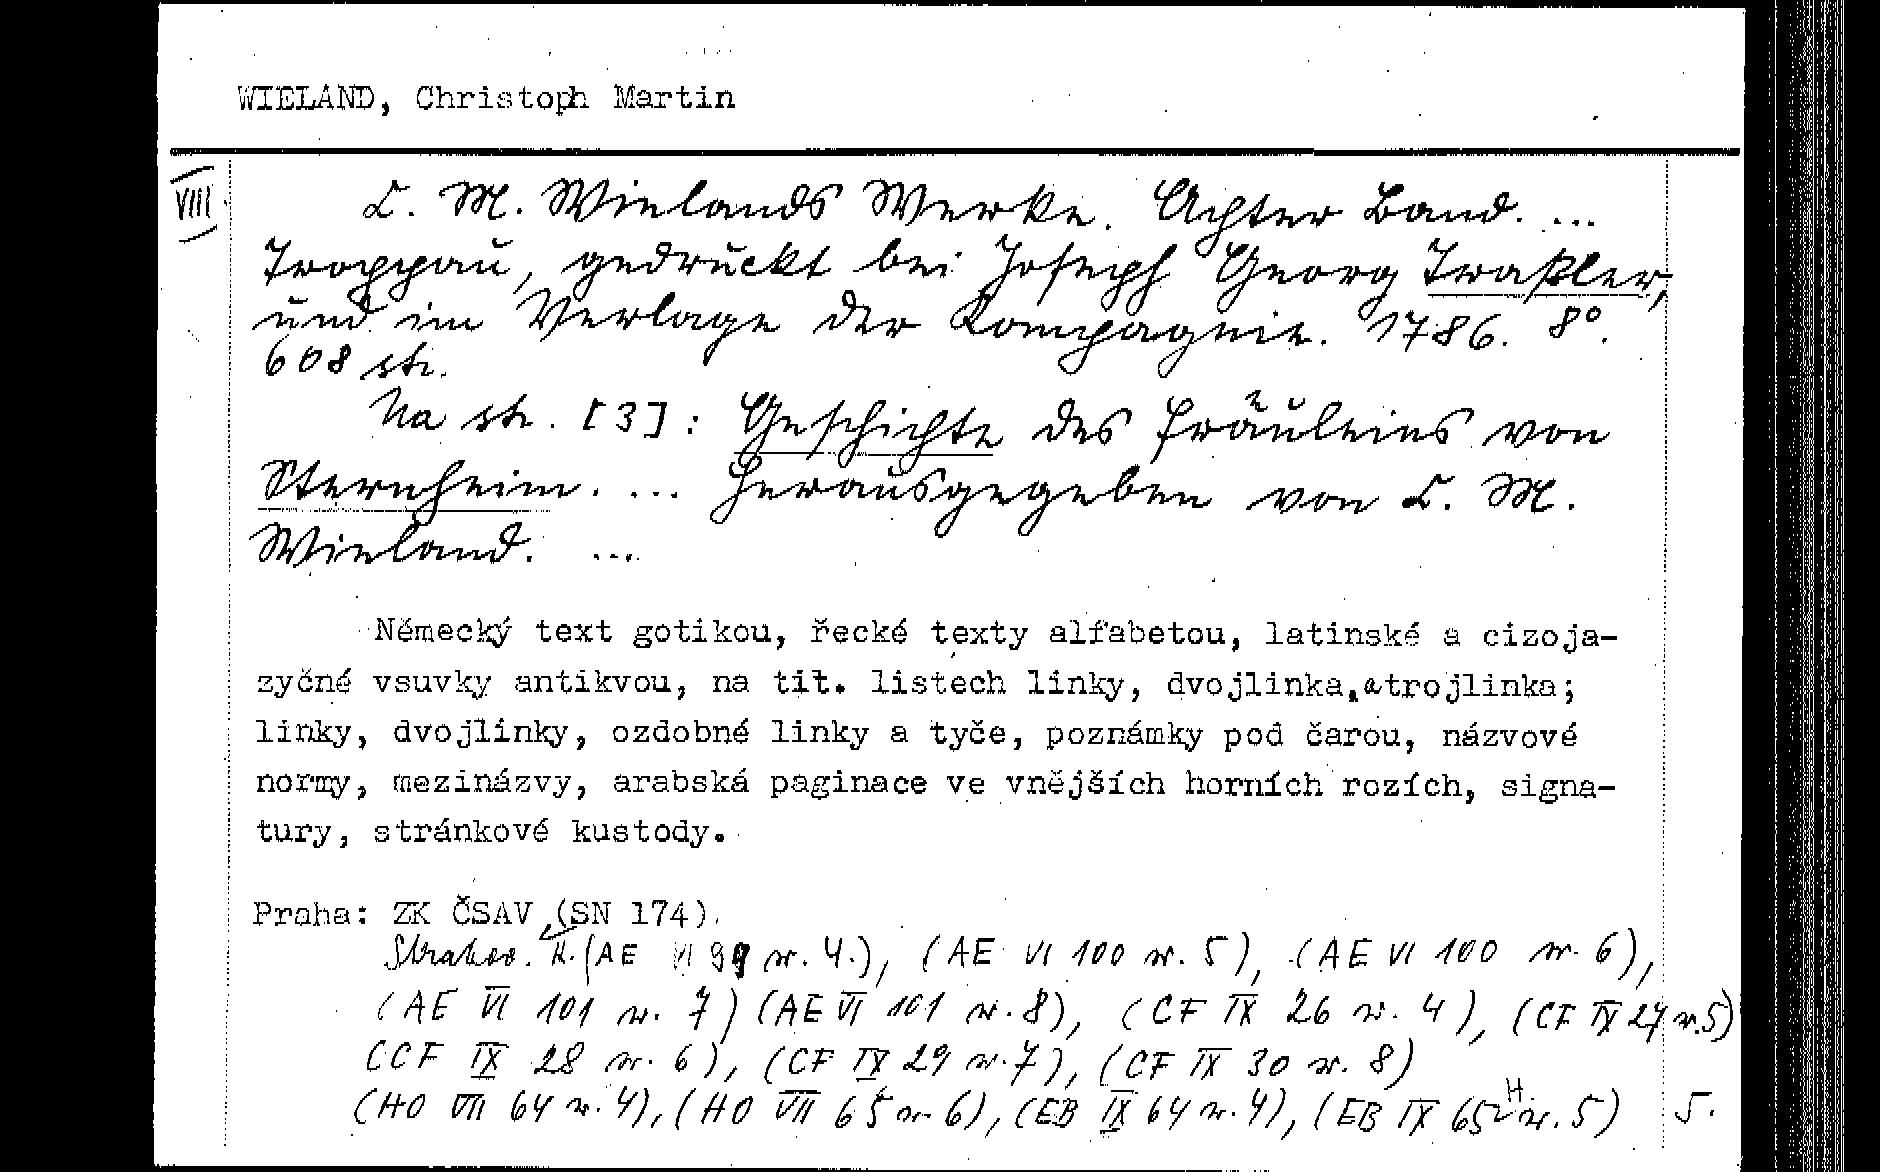 WIELAND, Christoph Martin
VIII.
C. M. Wielands Werke. Achter Band. ...
Troppau, gedruckt bei Joseph Georg Traßler,
und im Verlage der Kompagnie. 1786. 8°.
608 str.
Na str. [3]: Geschichte des Fräuleins von
Sternheim. ... Herausgegeben von C. M.
Wieland. ...
Německý text gotikou, řecké texty alfabetou, latinské a cizoja-
zyčné vsuvky antikvou, na tit. listech linky, dvojlinka, a trojlinka;
linky, dvojlinky, ozdobné linky a tyče, poznámky pod čarou, názvové
normy, mezinázvy, arabská paginace ve vnějších horních rozích, signa-
tury, stránkové kustody.
Praha: ZK ČSAV (SN 174).
Strahov. K. (AE VI 99 w. 4.), (AE VI 100 w. 5), (AE VI 100 w. 6),
(AE VI 101 w. 7) (AE VI 101 w. 8), (CF IX 26 w. 4), (CF IX 27 w. 5)
(CF IX 28 w. 6), (CF IX 29 w. 7), (CF IX 30 w. 8)
(HO VII 64 w. 4), (HO VII 65 w. 6), (EB IX 64 w. 4), (EB IX 65 H w. 5) 5.